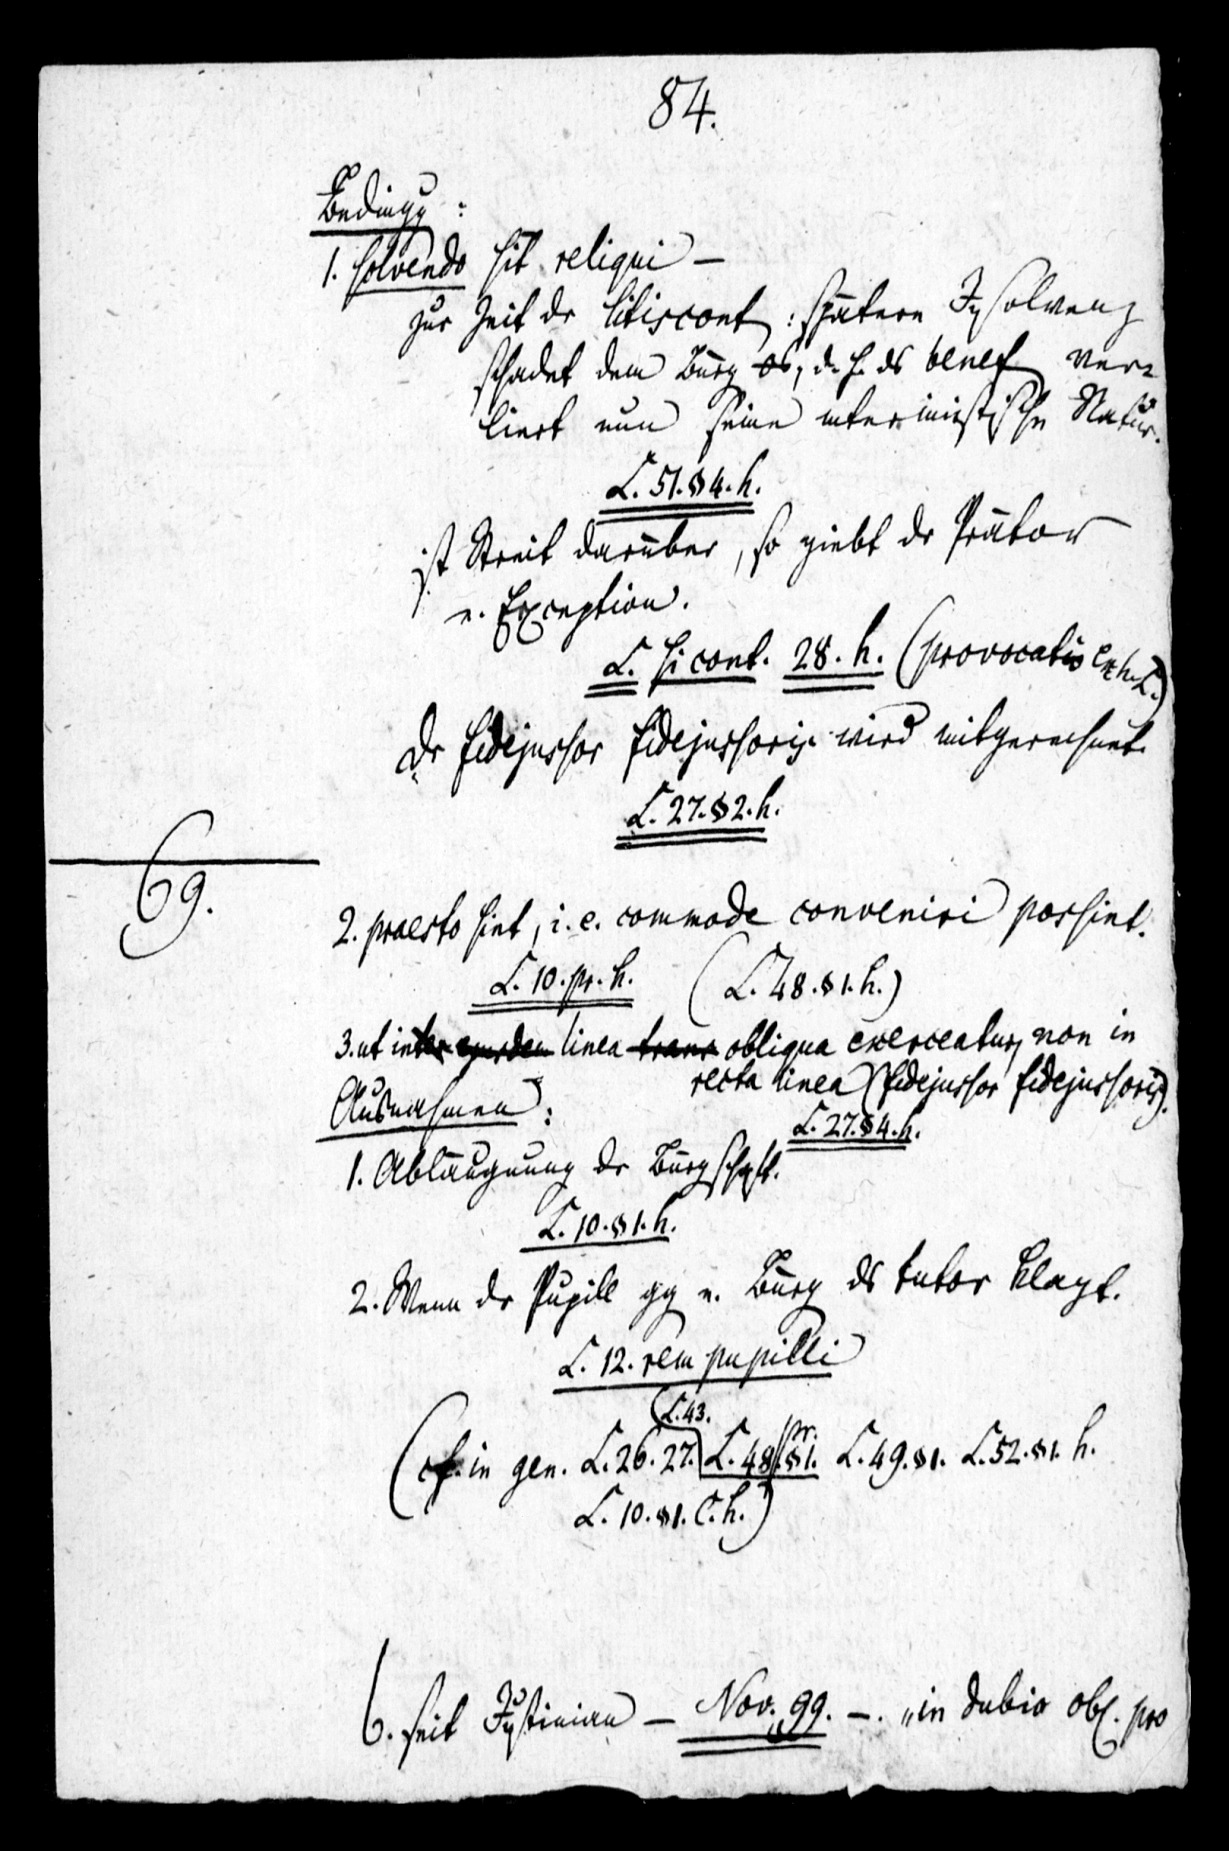 84.
Bedingg:
1. solvendo sit reliqui —
zur Zeit dr litiscont: spätere Insolvenz
schadet dem Bürg os, d. h. ds benef ver-
liert nun seine interimistische Natur.
L. 51. § 4. h.
ist Streit darüber, so giebt dr Prätor
e. Exception.
L. si cont. 28. h. (provocatio ex h. L.)
Dr fidejussor fidejussoris wird mitgerechnet.
L. 27. § 2. h.
69.
2. praesto sint, i. e. commode conveniri possint.
L. 10. pr. h. (L. 48. § 1. h.)
3. ut inter ejusdem linea trans obliqua exerceatur, non in
recta linea (fidejussor fidejussoris).
L. 27. § 4. h.
Ausnahmen:
1. Abläugnung dr Bürgschaft.
L. 10. § 1. h.
2. Wenn dr Pupill gg e. Bürg ds tutor klagt.
L. 12. rem pupilli
L. 43.
(cf. in gen. L. 26. 27. L. 48. pr. § 1. L. 49. § 1. L. 52. § 1. h.
L. 10. § 1. C. h.)
b. seit Justinian — Nov. 99. —. „in dubio obl. pro